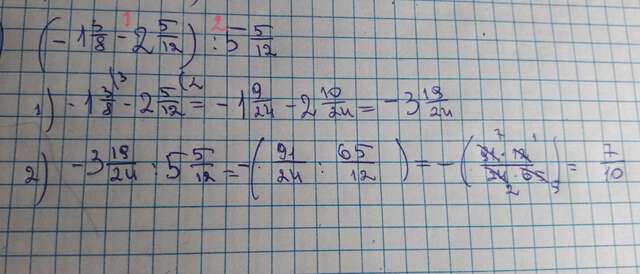 (-1 3/8 - 2 5/12) : 5 5/12
1) -1 3/8 - 2 5/12 = -1 9/24 - 2 10/24 = -3 19/24
2) -3 19/24 : 5 5/12 = -(91/24 : 65/12) = -(91·12/24·65) = 7/10